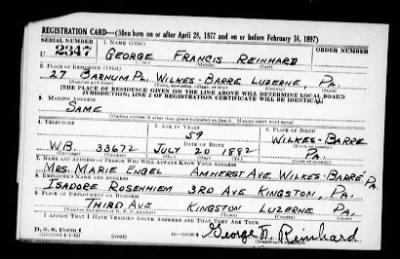 REGISTRATION CARD—(Men born on or after April 28, 1877 and on or before February 16, 1897)
SERIAL NUMBER 1. NAME (Print)
U 2347 GEORGE FRANCIS REINHARD
(First) (Middle) (Last)
2. PLACE OF RESIDENCE (Print)
27 BARNUM PL. WILKES-BARRE LUZERNE, PA.
(THE PLACE OF RESIDENCE GIVEN ON THE LINE ABOVE WILL DETERMINE LOCAL BOARD
JURISDICTION; LINE 2 OF REGISTRATION CERTIFICATE WILL BE IDENTICAL)
3. MAILING ADDRESS
SAME
4. TELEPHONE 5. AGE IN YEARS 6. PLACE OF BIRTH
59 WILKES-BARRE
DATE OF BIRTH
W.B. 33672 JULY 20 1882 PA.
7. NAME AND ADDRESS OF PERSON WHO WILL ALWAYS KNOW YOUR ADDRESS
MRS. MARIE ENGEL AMHERST AVE. WILKES-BARRE PA
8. EMPLOYER'S NAME AND ADDRESS
ISADORE ROSENHIEM 3RD AVE KINGSTON, PA.
9. PLACE OF EMPLOYMENT OR BUSINESS
THIRD AVE KINGSTON LUZERNE PA.
I AFFIRM THAT I HAVE VERIFIED ABOVE ANSWERS AND THAT THEY ARE TRUE.
D. S. S. Form 1
George F. Reinhard